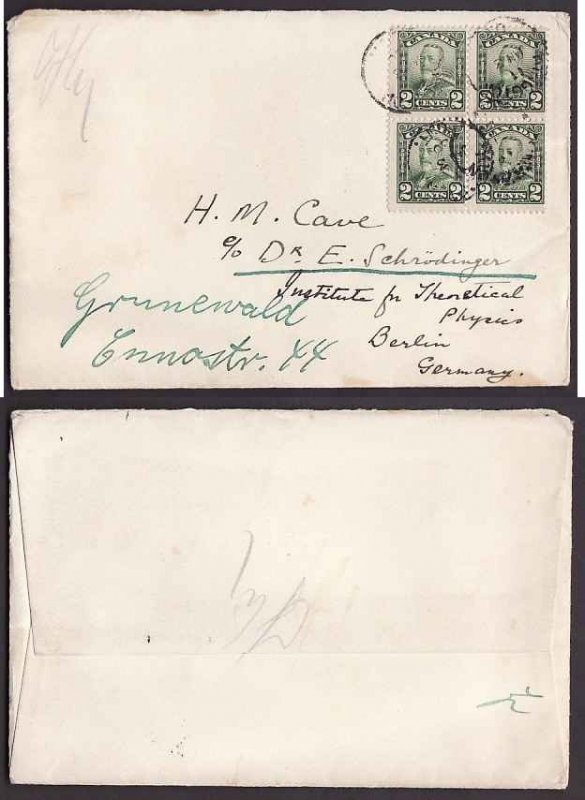 CANADA CANADA
2 CENTS 2 2 CENTS 2
CANADA CANADA
2 CENTS 2 2 CENTS 2
H. M. Cave
c/o Dr. E. Schrödinger
Institute for Theoretical
Physics
Berlin
Germany.
Grunewald